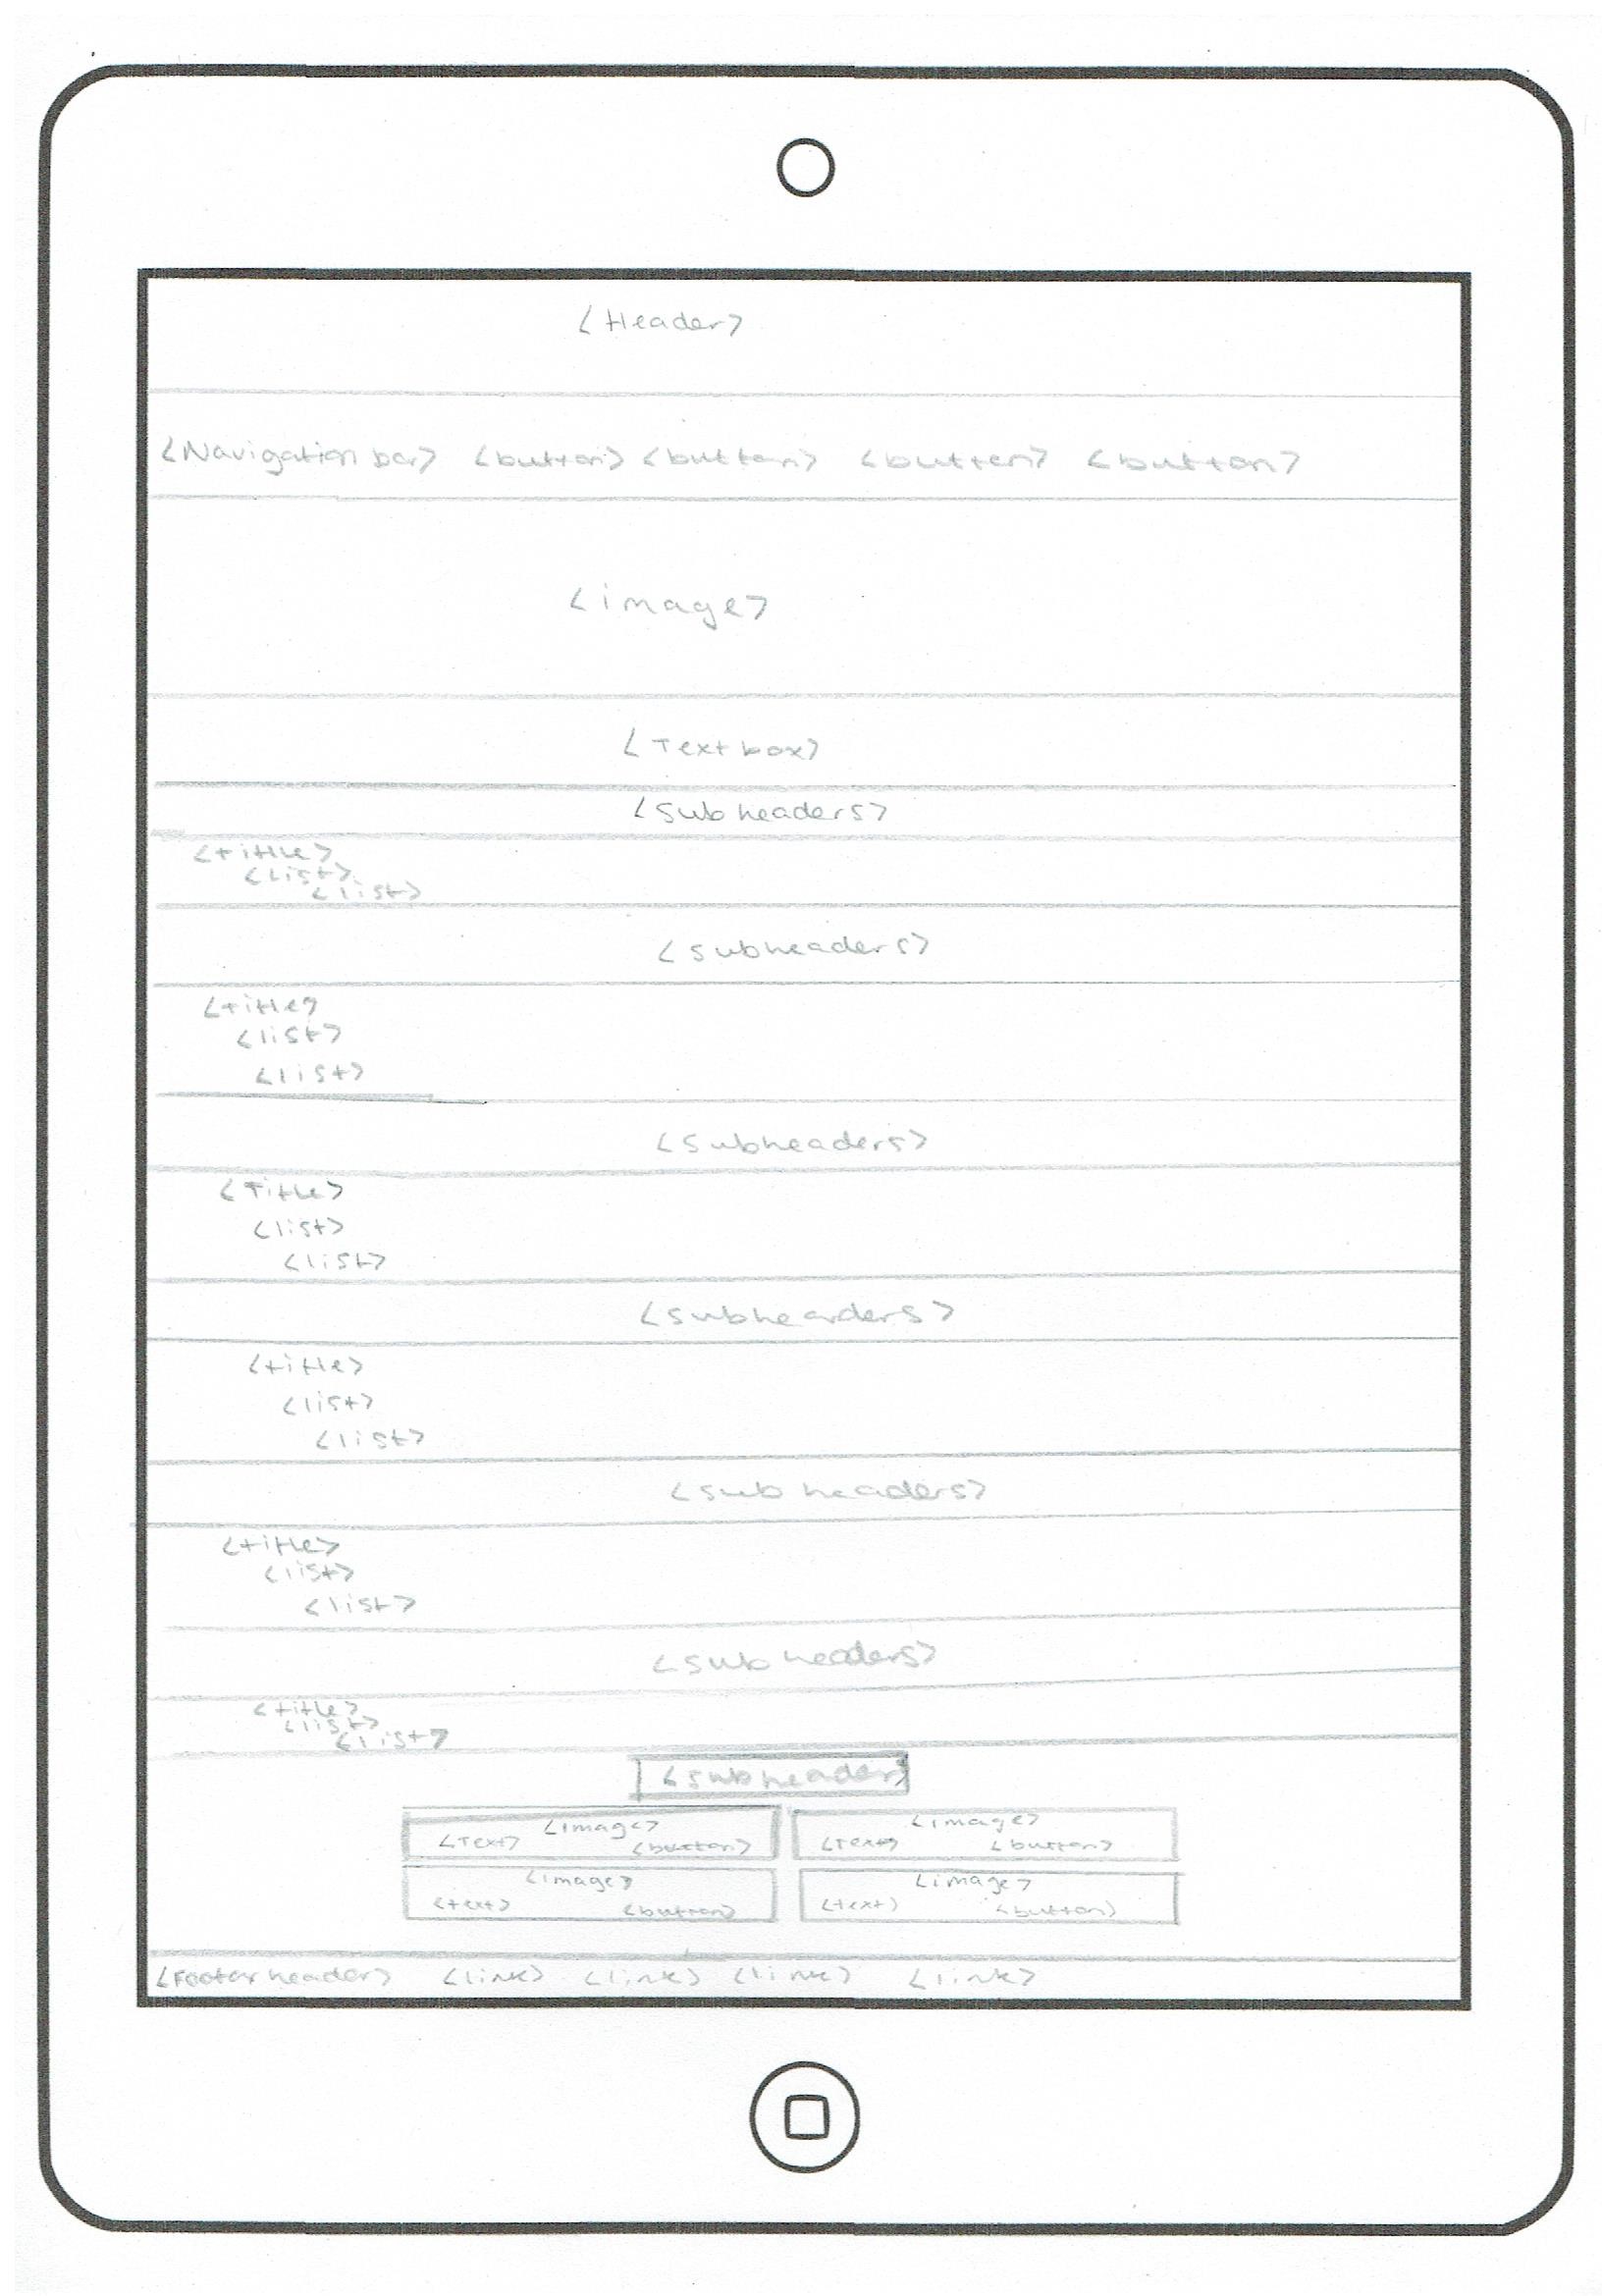 <Header>
<Navigation bar> <button> <button> <button> <button>
<image>
<Textbox>
<sub headers>
<title>
<list>
<list>
<subheaders>
<title>
<list>
<list>
<subheaders>
<Title>
<list>
<list>
<subheaders>
<title>
<list>
<list>
<sub headers>
<title>
<list>
<list>
<sub headers>
<title>
<list>
<list>
<subheader>
<image> <image>
<Text> <button> <Text> <button>
<image> <image>
<text> <button> <text> <button>
<Footer header> <link> <link> <link> <link>